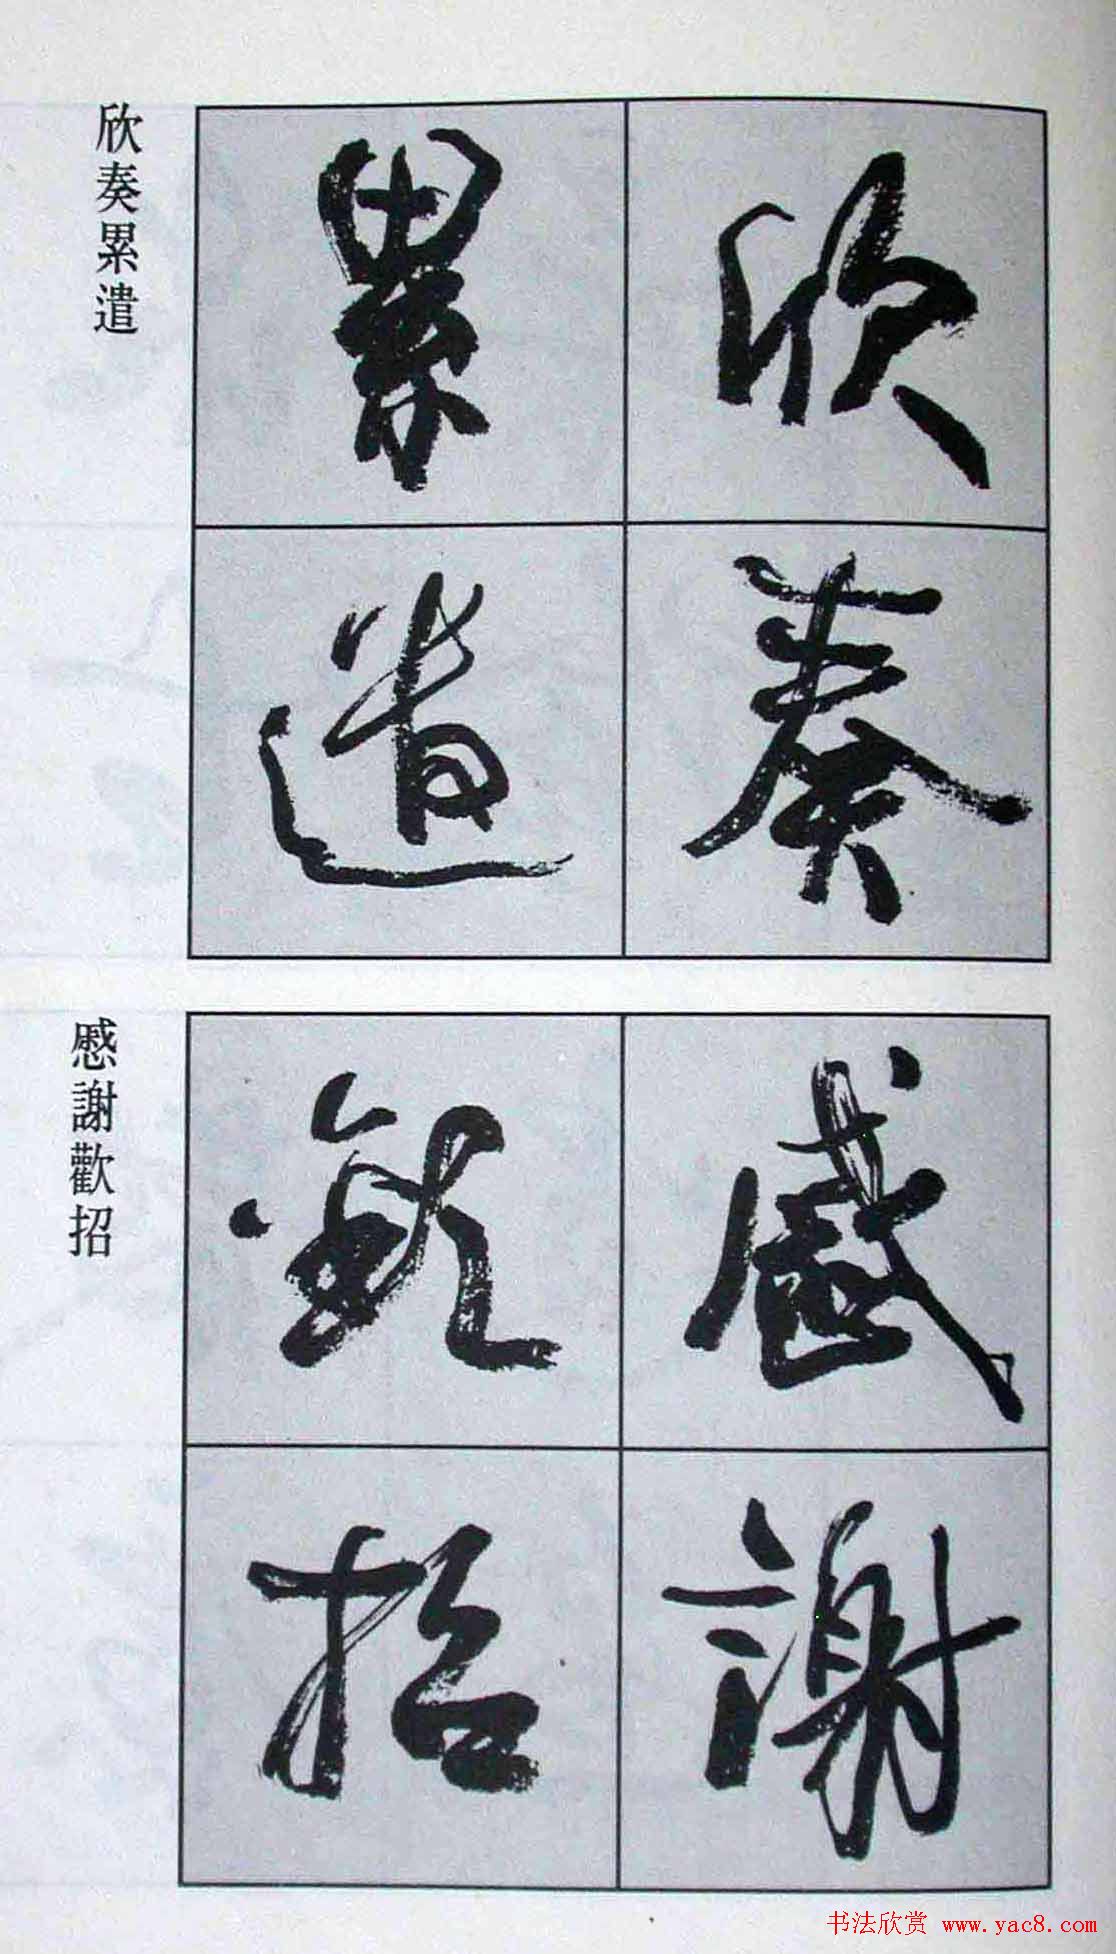 欣奏累遣
欣奏
累遣
慼謝歡招
慼謝
歡招
书法欣赏 www.yac8.com